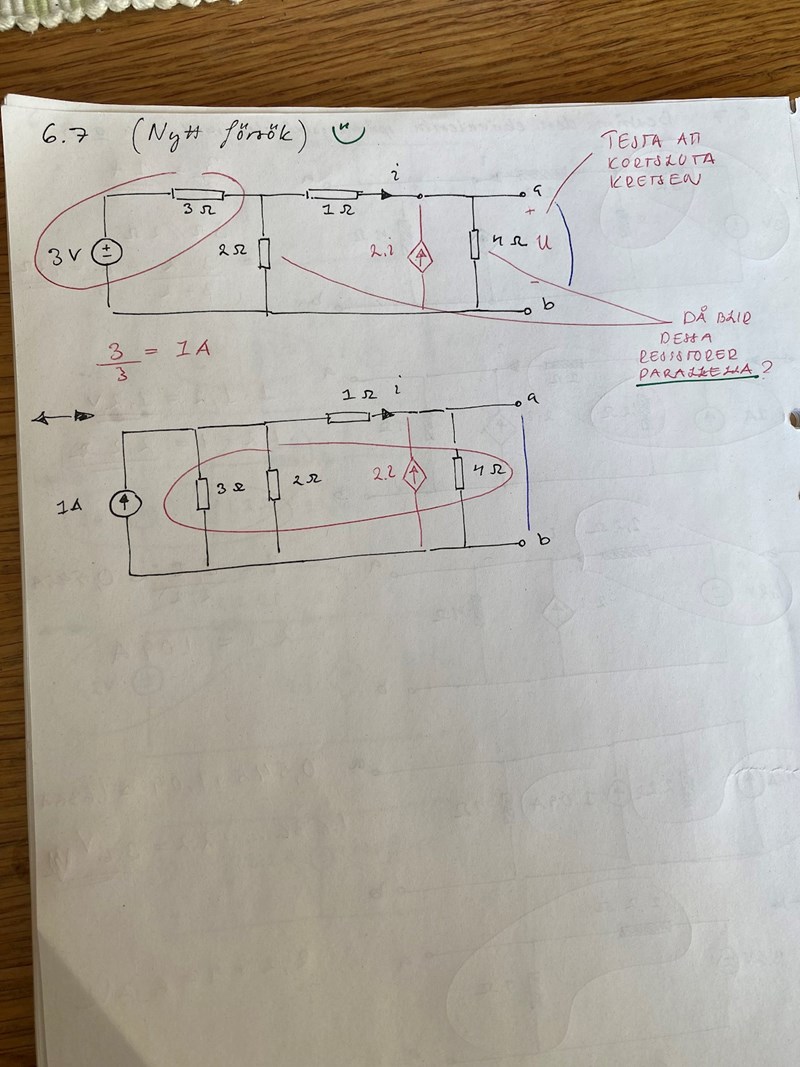 6.7 (Nytt försök)
TESTA ATT
KORTSLUTA
KRETSEN
i
a
3 Ω
1 Ω
+
3 V
±
2 Ω
2.i
4 Ω
U
-
b
DÅ BLIR
DESSA
RESISTORER
PARALLELLA?
3/3 = 1 A
1 Ω
i
a
1A
3 Ω
2 Ω
2.i
4 Ω
b